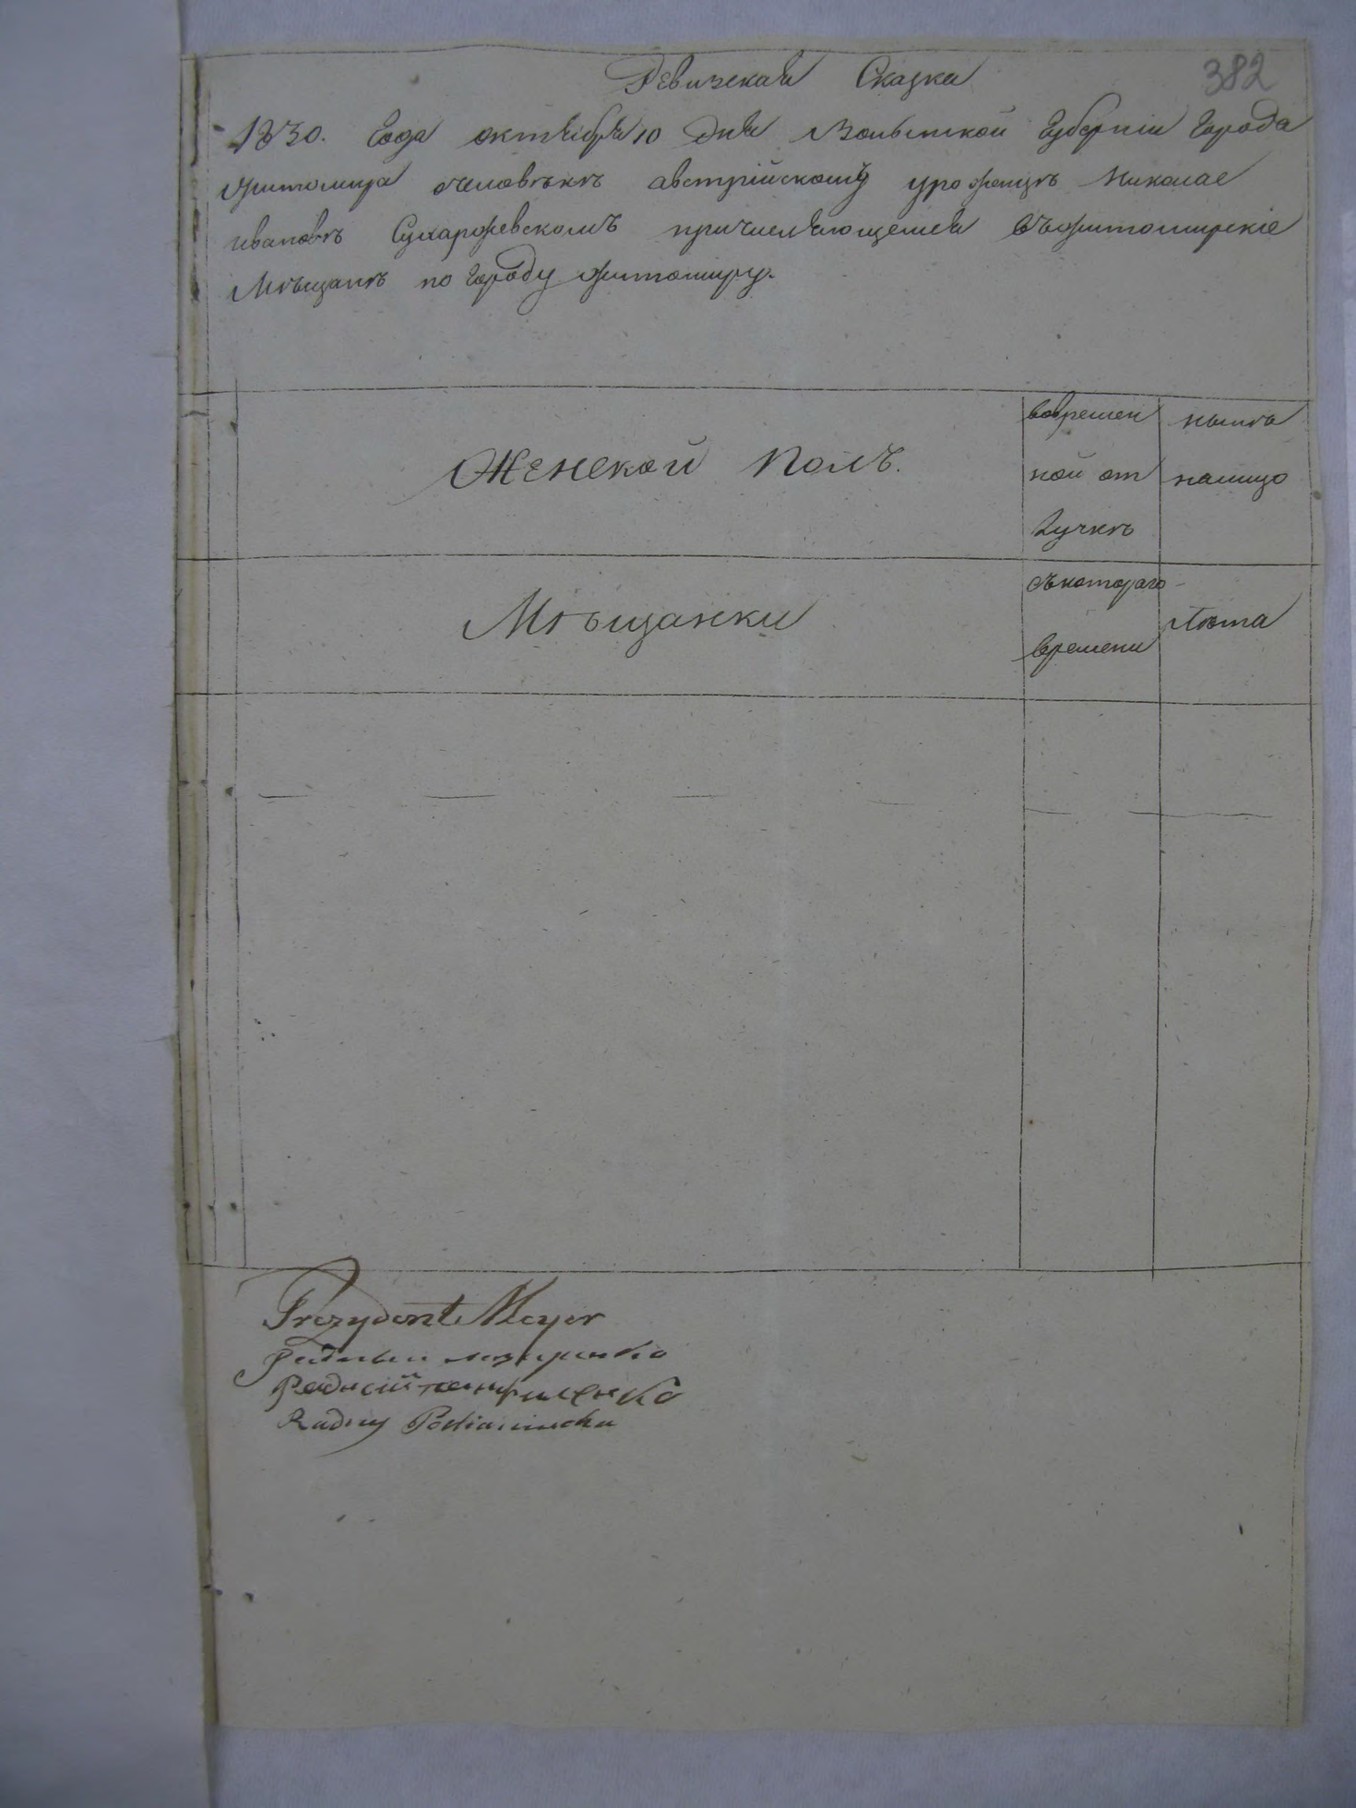 382
Ревизская Сказка
1830. Года октября 10 дня Волынской Губернии Города
Житомира очеловѣкѣ австрійскомъ уроженцѣ Николае
Ивановѣ Сухаржевскомъ причисляющемся въжитомирскіе
Мѣщанѣ по Городу Житомиру.
Женской Полъ.
вовремен
ной от
лучкѣ
нынѣ
налицо
Мѣщанки
съкотораго
времени
Лѣта
Prezydent Meyer
Радный
Радний
Radny